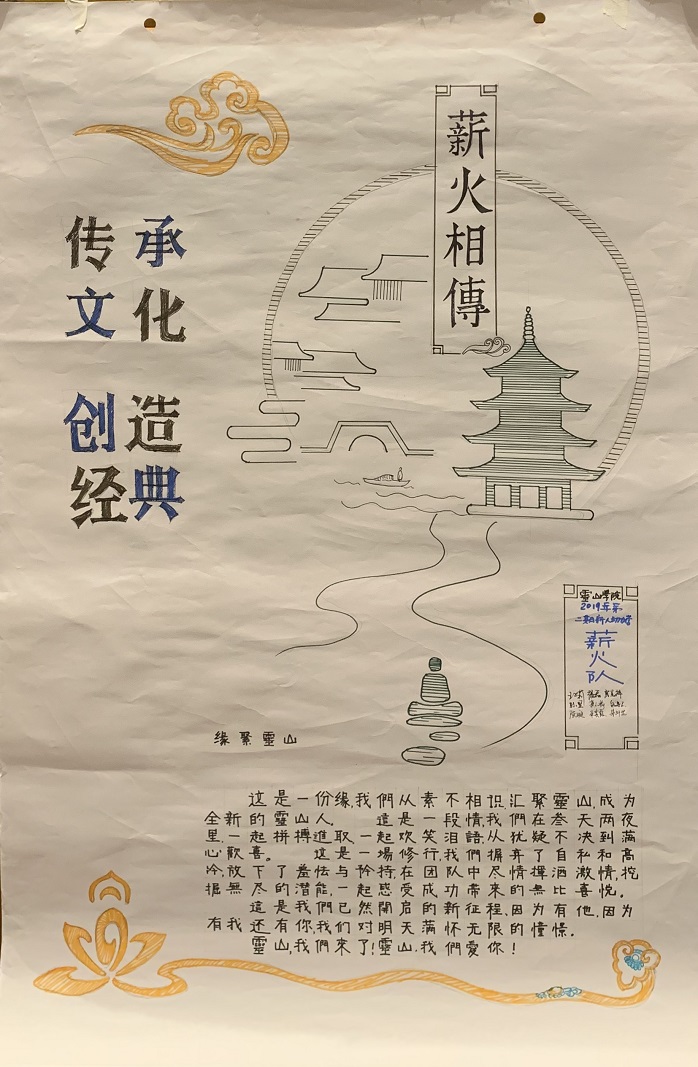 薪火相傳
传承
文化
创造
经典
靈山学院
2019年第
薪火队
缘聚靈山
这是一份缘,我們从素不相識,汇聚靈山,成为
全新的靈山人。这段我們在叁天两夜
里,一起拼搏進取,一欢笑泪語,从犹疑不决到满
心歡喜。这是一場修行,我們摒弃自私和高
冷,放下了羞怯与矜持,在团队中尽情揮洒激情,挖
掘無尽的潜能,一起感受成功帶来的無比喜悦。
这是我們已然開启的新征程,因为有他,因为
有我,还有你,我们对明天满怀无限的憧憬.
靈山,我們来了!靈山,我們愛你!